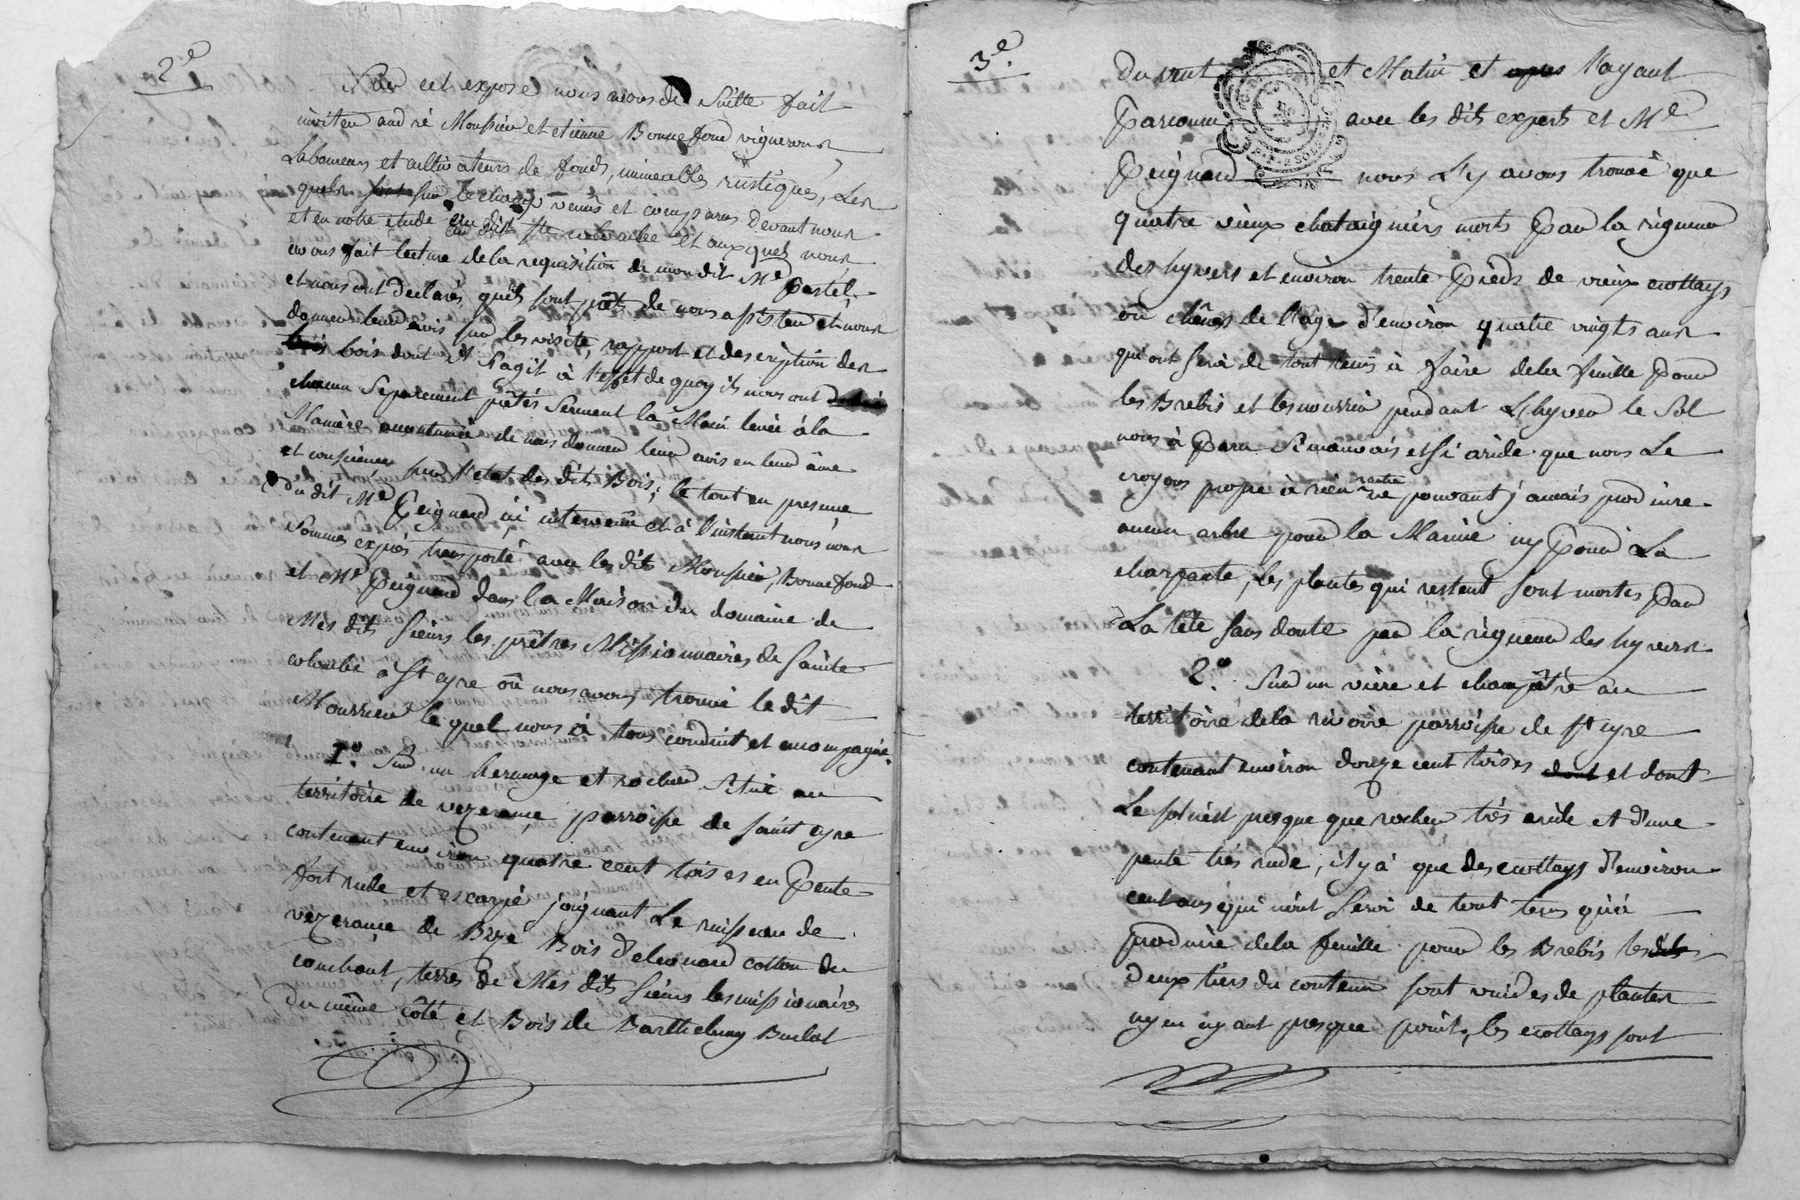 2.e
Sur cet exposé nous avons de Suitte fait
inviter andré Monssier et etienne Bonnefond vignerons
Laboureurs et cultivateurs de fonds, immeubles rustiques, Les
quels venus et comparus devant nous
et en notre etude et auxquels nous
avons fait lecture de la requisition de mondit Me
et nous ont declarés qu'ils sont prêt de nous assister et nous
donner leur avis sur les visite, rapport et description des
bois dont il S'agit à l'effet de quoy ils nous ont
chacun Separement prêtés Serment la Main levée à la
Manière accoutumée de nous donner leur avis en leur âme
et conscience sur l'etat des dits Bois; le tout en presence
du dit Me Peignaud ici intervenu et à l'instant nous nous
Sommes exprès transporté avec les dits Monssier, Bonnefond
et Me Peignaud dans la Maison du domaine de
Mes dits Sieurs les prêtres Missionnaires de Sainte
colombe à St cyre où nous avons trouvé le dit
Mourrieu lequel nous à tous conduit et accompagné.
1.° Sur un hermage et rocher Situé au
territoire de vezerance parroisse de Saint cyre
contenant environ quatre cent toises en Pente
fort rude et escarpé joignant Le ruisseau de
vezerance de Bize Bois d'eleonard cotton du
couchant, terres de Mes dits Sieurs les missionaires
du même côté et Bois de Barthelemy Burlat
3.e
Du vent et Matin et Layant
Parcouru avec les dits experts et Me
Peignaud nous L'y avons trouvé que
quatre vieux chataigniers morts Par la rigueur
des hyvers et environ trente Pieds de vieux crottays
ou chênes de l'age d'environ quatre vingts ans
qui ont servi de tout tems à faire de la feuille Pour
les Brebis et les nourrir pendant L'hyver le Sol
nous à Paru Si mauvais et Si aride que nous Le
croyons propre à rien ne pouvant jamais produire
aucun arbre pour la Marine ny Pour La
charpante, les plantes qui restent sont mortes Par
La tête sans doute par la rigueur des hyvers
2.° Sur un vière et champêtre au
territoire de la rivoire parroisse de St cyre
contenant environ douze cent toises dont et dont
Le sol n'est presque que rocher très aride et d'une
pente très rude, il y à que des crottays d'environ
cent ans qui n'ont servi de tout tems qu'à
produire de la feuille pour les Brebis les dits
deux tiers du contenu sont vuides de plantes
ny en ayant presque point, les crottays sont